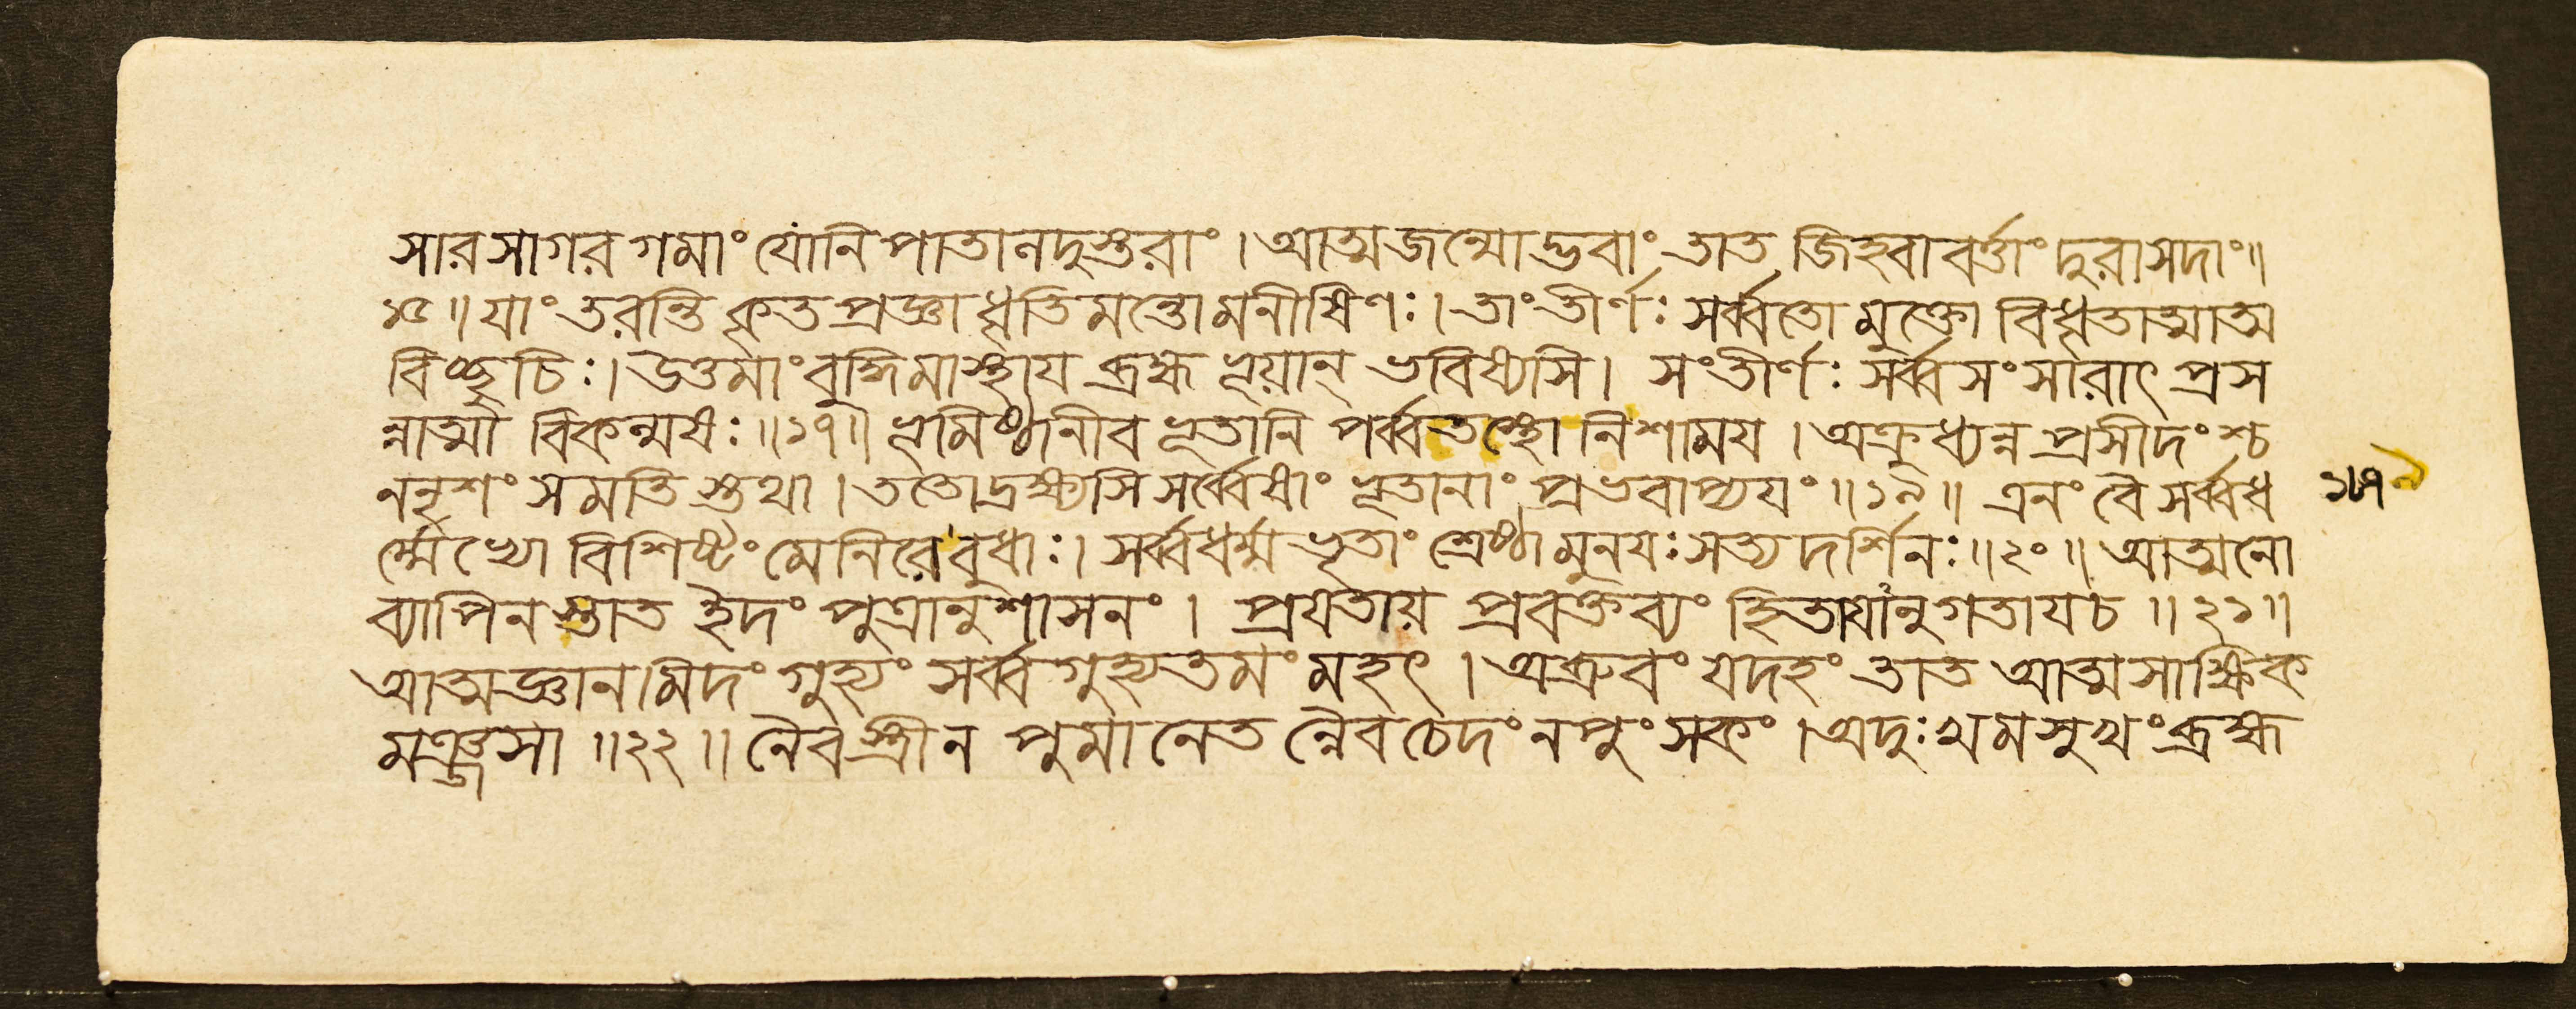 সারসাগরগমাং যোনিপাতানদুস্তরাং । আত্মজন্মোদ্ভবাং তাত জিহ্বাবর্ত্তাং দুরাসদাং ॥
১৫ ॥ যাং তরন্তি কৃতপ্রজ্ঞা ধৃতিমন্তো মনীষিণঃ । তাং তীর্ণঃ সর্ব্বতো মুক্তো বিধৃতাত্মাত্ম
বিচ্ছুচিঃ । উত্তমাং বুদ্ধিমাস্থায ব্রহ্ম ভূয়ান্ ভবিষ্যসি । সংতীর্ণঃ সর্ব্বসংসারাৎ প্রস
ন্নাত্মা বিকল্মষঃ ॥ ১৭ ॥ ভূমিষ্ঠানীব ভূতানি পর্ব্বতস্থো নিশাময । অক্রুধ্যন্ন প্রসীদংশ্চ
ননৃশং সমতিস্তথা । ততো দ্রক্ষ্যসি সর্ব্বেষাং ভূতানাং প্রভবাপ্যযং ॥ ১৯ ॥ এনং বৈ সর্ব্বধ
র্ম্মেভ্যো বিশিষ্টং মেনিরে বুধাঃ । সর্ব্বধর্ম্মভৃতাং শ্রেষ্ঠা মুনযঃ সত্যদর্শিনঃ ॥ ২০ ॥ আত্মনো
ব্যাপিনস্তাত ইদং পুত্রানুশাসনং । প্রযতায় প্রবক্তব্যং হিতাযানুগতাযচ ॥ ২১ ॥
আত্মজ্ঞানমিদং গুহ্যং সর্ব্বগুহ্যতমং মহৎ । অব্রুবং যদহং তাত আত্মসাক্ষিক
মঞ্জসা ॥ ২২ ॥ নৈব স্ত্রী ন পুমানেতন্নৈব চেদং নপুংসকং । অদুঃখমসুখং ব্রহ্ম